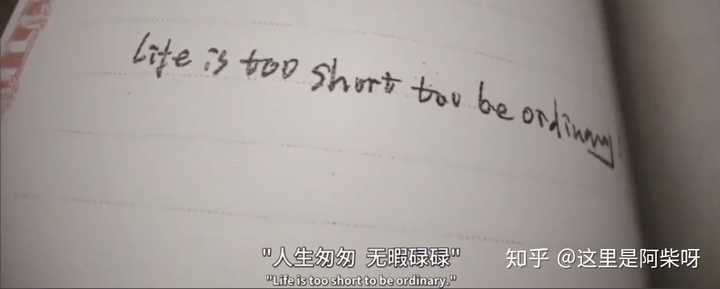 Life is too short too be ordinary.
"人生匆匆 无暇碌碌"
"Life is too short to be ordinary."
知乎 @这里是阿柴呀